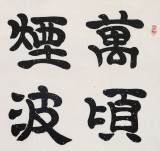 萬頃
煙波